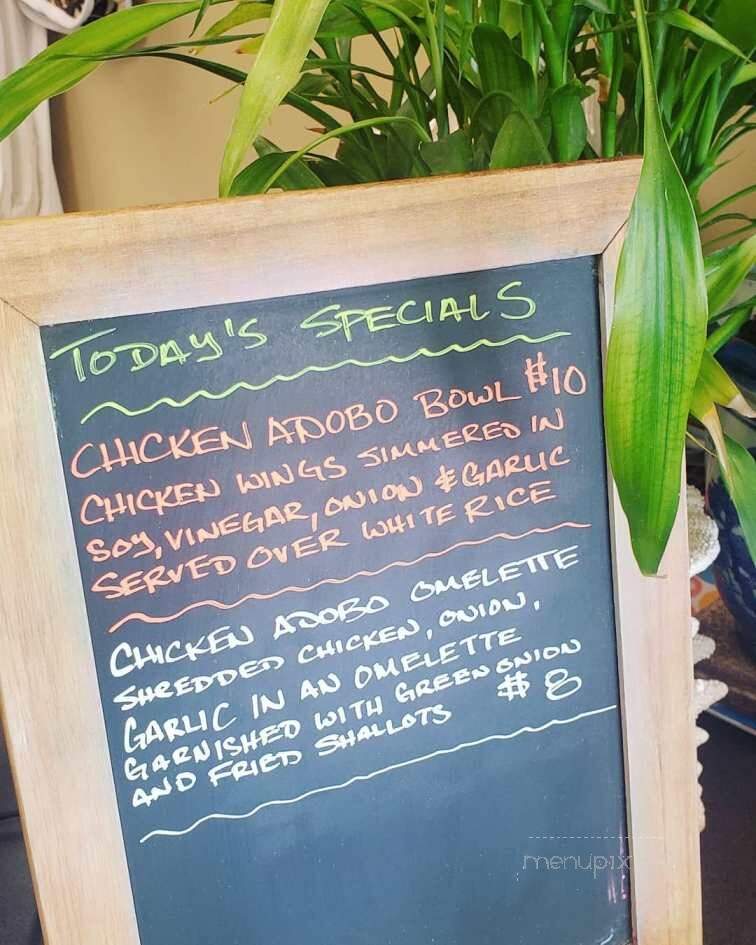 TODAY'S SPECIALS
CHICKEN ADOBO BOWL $10
CHICKEN WINGS SIMMERED IN
SOY, VINEGAR, ONION & GARLIC
SERVED OVER WHITE RICE
CHICKEN ADOBO OMELETTE
SHREDDED CHICKEN, ONION,
GARLIC IN AN OMELETTE
GARNISHED WITH GREEN ONION
AND FRIED SHALLOTS $8
menupix